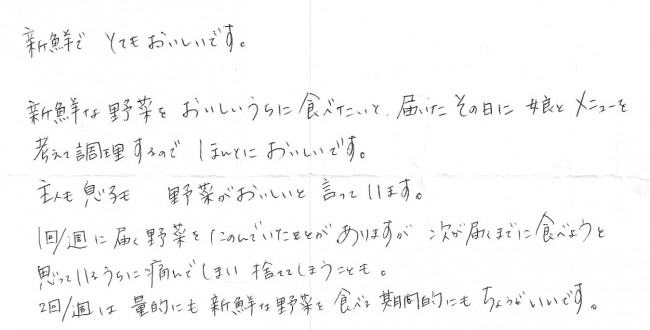 新鮮で とてもおいしいです。
新鮮な野菜を おいしいうちに食べたいと、届いたその日に 娘とメニューを
考えて調理するので ほんとにおいしいです。
主人も息子も 野菜がおいしいと言っています。
1回/週に届く野菜をたのんでいたことがありますが 次が届くまでに食べようと
思っているうちに痛んでしまい捨ててしまうことも。
2回/週は 量的にも新鮮な野菜を食べる期間的にもちょうどいいです。